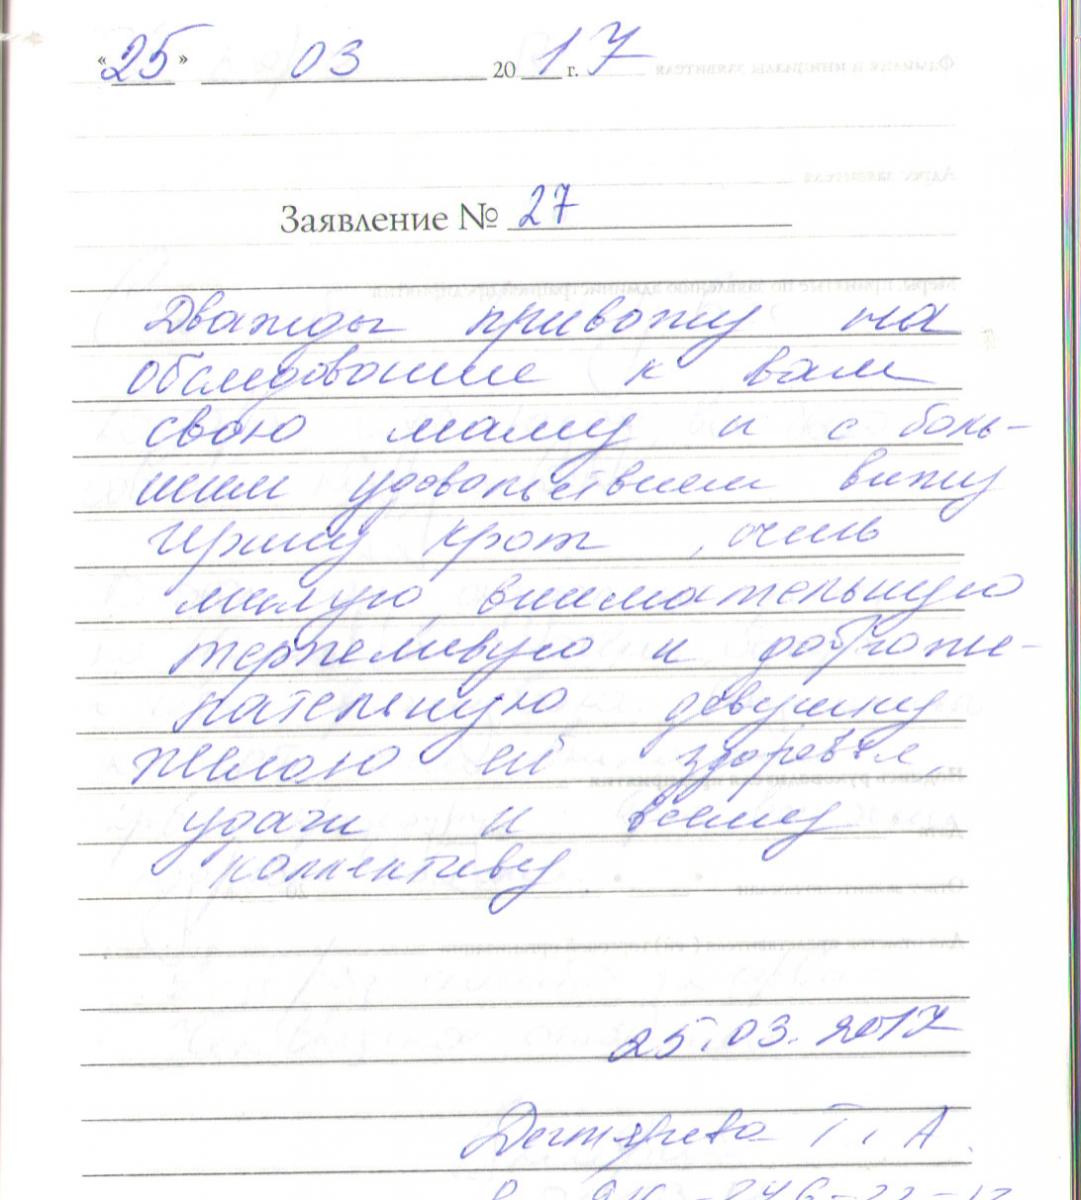 «25» 03 2017 г.
Заявление № 27
Дважды привожу на
обследование к вам
свою маму и с боль-
шим удовольствием вижу
Ирину Крот, очень
милую, внимательную
терпеливую и доброже-
лательную девушку
Желаю ей здоровья,
удачи и всему
коллективу.
25.03.2017
Дегтярева Т. А.